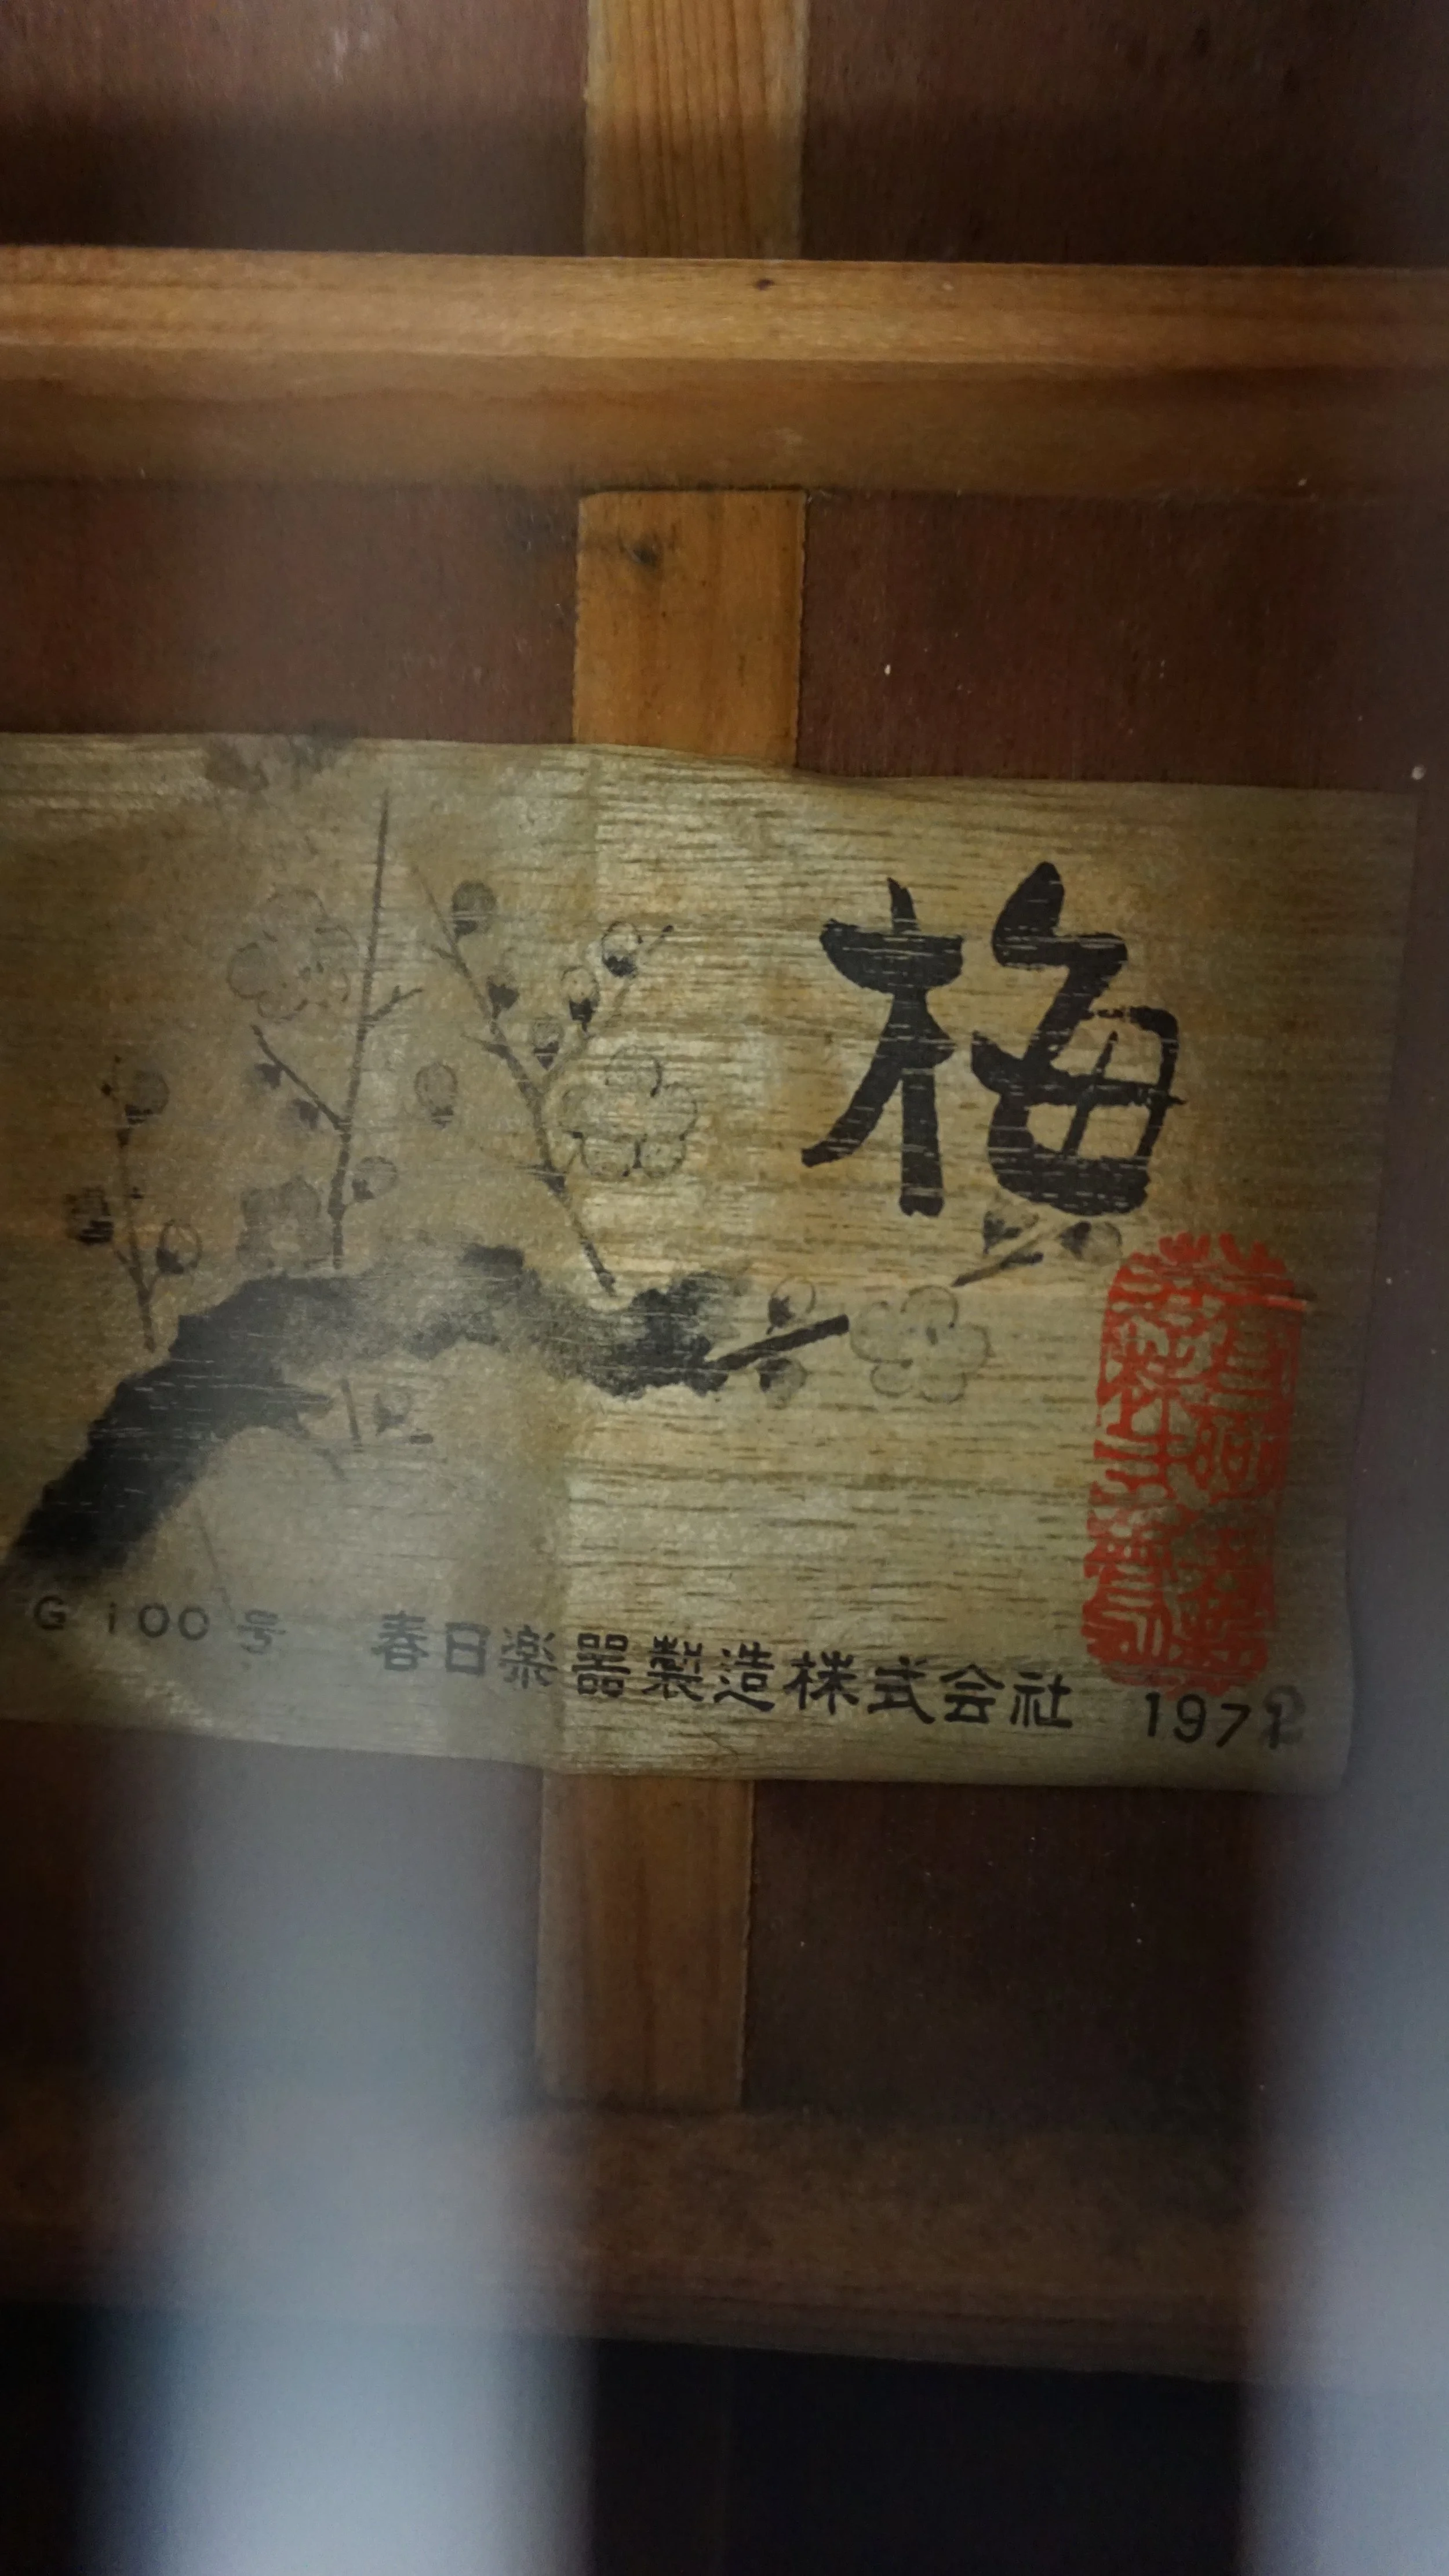 梅
G 100 号 春日楽器製造株式会社 197